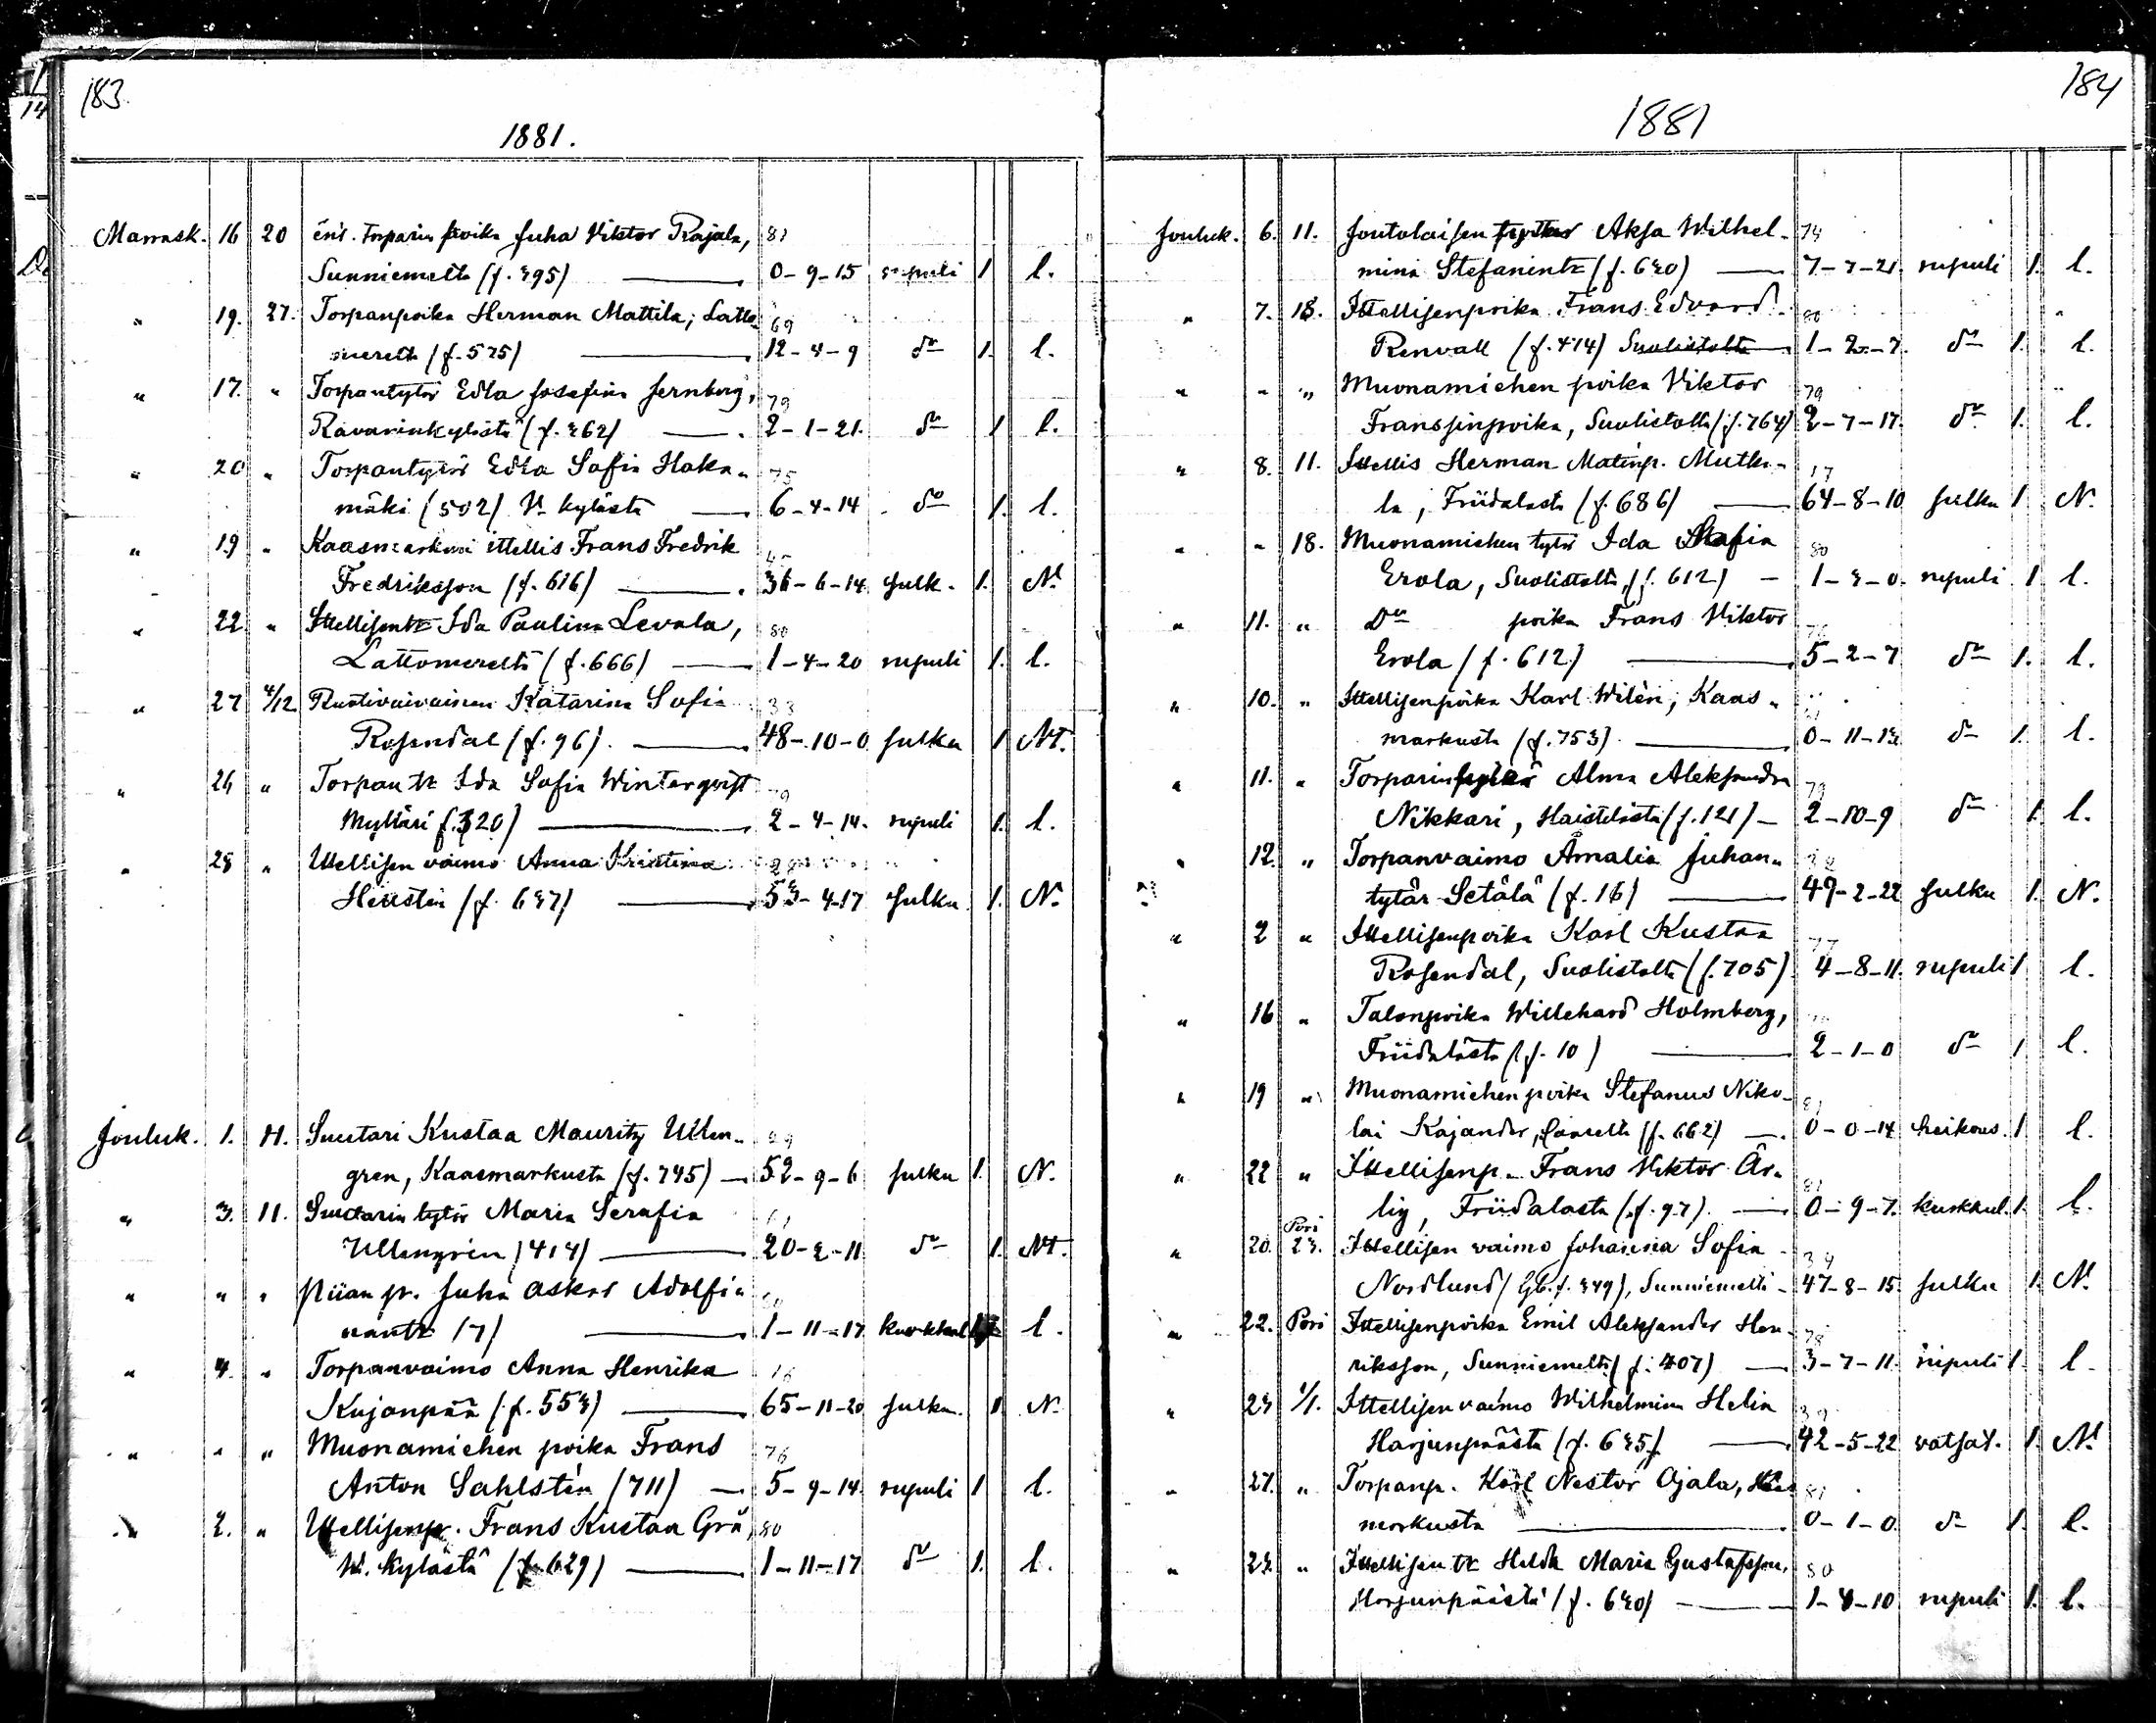 183.
1881.
Marrask. 16 20 ent. Torparin poika Juha Viktor Rajala, 81
Sunniemeltä (f. 395) — 0-9-15 rupuli 1 l.
" 19. 27. Torpanpoika Herman Mattila, Latto- 69
merelta (f. 525) — 12-4-9 do 1. l.
" 17. " Torpantytär Edla Josefina Jernberg, 79
Ravaninkylästä (f. 362) — 2-1-21. do 1 l.
" 20 " Torpantytär Edla Sofia Haka- 75
mäki (502) V. kylästä — 6-4-14 do 1. l.
" 19 " Kaasmarkun ittellis Frans Fredrik
Fredriksson (f. 616) — 36-6-14 julk. 1. N.
" 22 " Ittellisentr Ida Paulina Levala, 80
Lattomerelta (f. 666) — 1-4-20 rupuli 1. l.
" 27 4/12 Ruotivaivainen Katarina Sofia 33
Rosendal (f. 96) — 48-10-0 julku 1 Nt.
" 26 " Torpan tr Ida Sofia Winterqvist 79
Myllari (f. 320) — 2-4-14. rupuli 1. l.
" 28 " Ittellisen vaimo Anna Kristina 28
Hellstén (f. 637) — 53-4-17 julku 1. N.
Jouluk. 1. 11. Suutari Kustaa Mauritz Ullen- 29
gren, Kaasmarkusta (f. 745) — 52-9-6 julku 1. N.
" 3. 11. Suutarin tytär Maria Serafia 61
Ullengrén (414) — 20-2-11 do 1. Nt.
" " " Piian p. Juha Oskar Adolfi- 80
nantr (7) — 1-11-17 kurkkul l.
" 4. " Torpanvaimo Anna Henrika 16
Kujanpää (f. 553) — 65-11-20 julku. 1 N.
" " " Muonamiehen poika Frans 76
Anton Sahlstén (711) — 5-9-14 rupuli 1 l.
" 2. " Ittellisenp. Frans Kustaa Grå, 80
W. kylästä (f. 629) — 1-11-17 do 1. l.
184
1881
Jouluk. 6. 11. Joutolaisen tytär Aksa Wilhel- 74
mina Stefanintr (f. 630) — 7-7-21. rupuli 1. l.
" 7. 18. Ittellisenpoika Frans Edvard 80
Renvall (f. 414) Suolistolta 1-2-7. do 1. l.
" " " Muonamiehen poika Viktor 79
Franssinpoika, Suolistolta (f. 764) 2-7-17. do 1. l.
" 8. 11. Ittellis Herman Matinp. Mutka- 17
la, Friidalasta (f. 686) — 64-8-10 julku 1. N.
" " 18. Muonamiehen tytär Ida Sofia 80
Erola, Suolistolta, (f. 612) — 1-3-0. rupuli 1 l.
" 11. " Do poika Frans Viktor 76
Erola (f. 612) — 5-2-7 do 1. l.
" 10. " Ittellisenpoika Karl Wilén, Kaas-
markusta (f. 753) — 0-11-13. do 1. l.
" 11. " Torparin tytär Alma Aleksandra 79
Nikkari, Haistilasta (f. 121) — 2-10-9 do 1 l.
" 12. " Torpanvaimo Amalia Juhan- 32
tytär Setälä (f. 16) — 49-2-22 julku 1. N.
" 2 " Ittellisenpoika Karl Kustaa 77
Rosendal, Suolistolta (f. 705) 4-8-11. rupuli 1 l.
" 16 " Talonpoika Willehard Holmberg,
Friidalasta (f. 10) — 2-1-0 do 1 l.
" 19 " Muonamiehen poika Stefanus Niko- 81
lai Kajander, (f. 662) — 0-0-14 heikous. 1 l.
" 22 " Ittellisenp. Frans Viktor Är- 81
lig, Friidalasta (f. 97) — 0-9-7. kurkkul. 1. l.
" 20. Pori 23. Ittellisen vaimo Johanna Sofia 34
Nordlund (Gb. f. 349), Sunniemelta - 47-8-15. julku 1. N.
" 22. Pori Ittellisenpoika Emil Aleksander Hen- 78
riksson, Sunniemelta (f. 407) — 3-7-11. rupuli 1. l.
" 23 1/1. Ittellisen vaimo Wilhelmina Helin 39
Harjunpäästä (f. 635) — 42-5-22 vatsat. 1. N.
" 27. " Torpanp. Karl Nestor Ojala, Kaas- 81
markusta — 0-1-0. do 1. l.
" 23. " Ittellisen tr Hilda Maria Gustafsson, 80
Harjunpäästä (f. 630) — 1-4-10 rupuli 1. l.